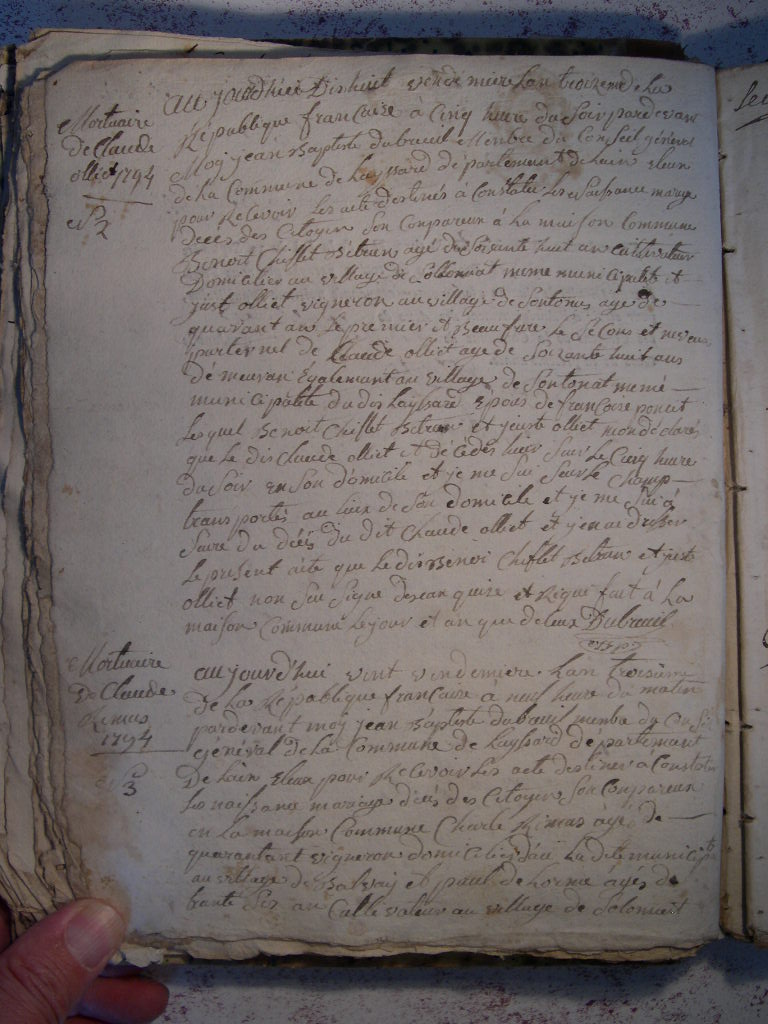 aujourdhui Dishuit vendemiere Lan troizeme de La
Mortuaire
De Claude
olliet 1794
N 2
République francaise à Cinq heure du Soir pardevan
Moy jean Baptiste dubreuil Membre du Conseil géneral
de la Commune de Laysard département de Lain Eleu
pour Recevoir Les acte destinés à Constater Les Naissance mariage
Décés des Citoyen Son Compareu à La maison Commune
Benoit Chiflet Bitrun agé de Soisante huit an cultivateur
Domicilier au village de Solomiat meme municipalité et
just olliet vigneron au village de Sontonas age de
quarant an Le premier et Beau frere Le Second et neveux
paternel de Claude olliet age de Soizante huit ans
démeuran Également au village de Sontonat meme
municipalité du dis Laysard Epous de francoise
Lesquel Benoit Chiflet Bitrun et juste olliet mon déclaré
que Le dis Claude olliet et décédés hier Sur Le Cinq heure
du Soir en Son domicile et je me Sui Seur Le Champ
transportés au Lieu de Son domicile et je me Sui
Sure du décés du dit Claude olliet et jen ai dresser
Le present acte que Le dis Benoi Chiflet Bitrun et juste
olliet non Seu Signe de Sean quise et Requi fait à La
maison Commune Le jour et an que de Seux Dubreuil
Mortuaire
De Claude
Rimus
1794
N 3
aujourdhui vint vindemiere Lan troisieme
de La République francaise a neuf heure du matin
pardevant moy jean Baptiste dubreuil menbre du Conseil
géneral de La Commune de Laysard département
De Lain Eleux pour Recevoir Les acte destiner a Constater
Les naissance mariage décés des Citoyens Son Compareux
en La maison Commune Charle Rimas âgé de
quarantant vigneron domiciliés dau La dite municipte
au village de Balvay et paul de Lorme âgés de
trante Sis an Cultivateur au village de Solomiat